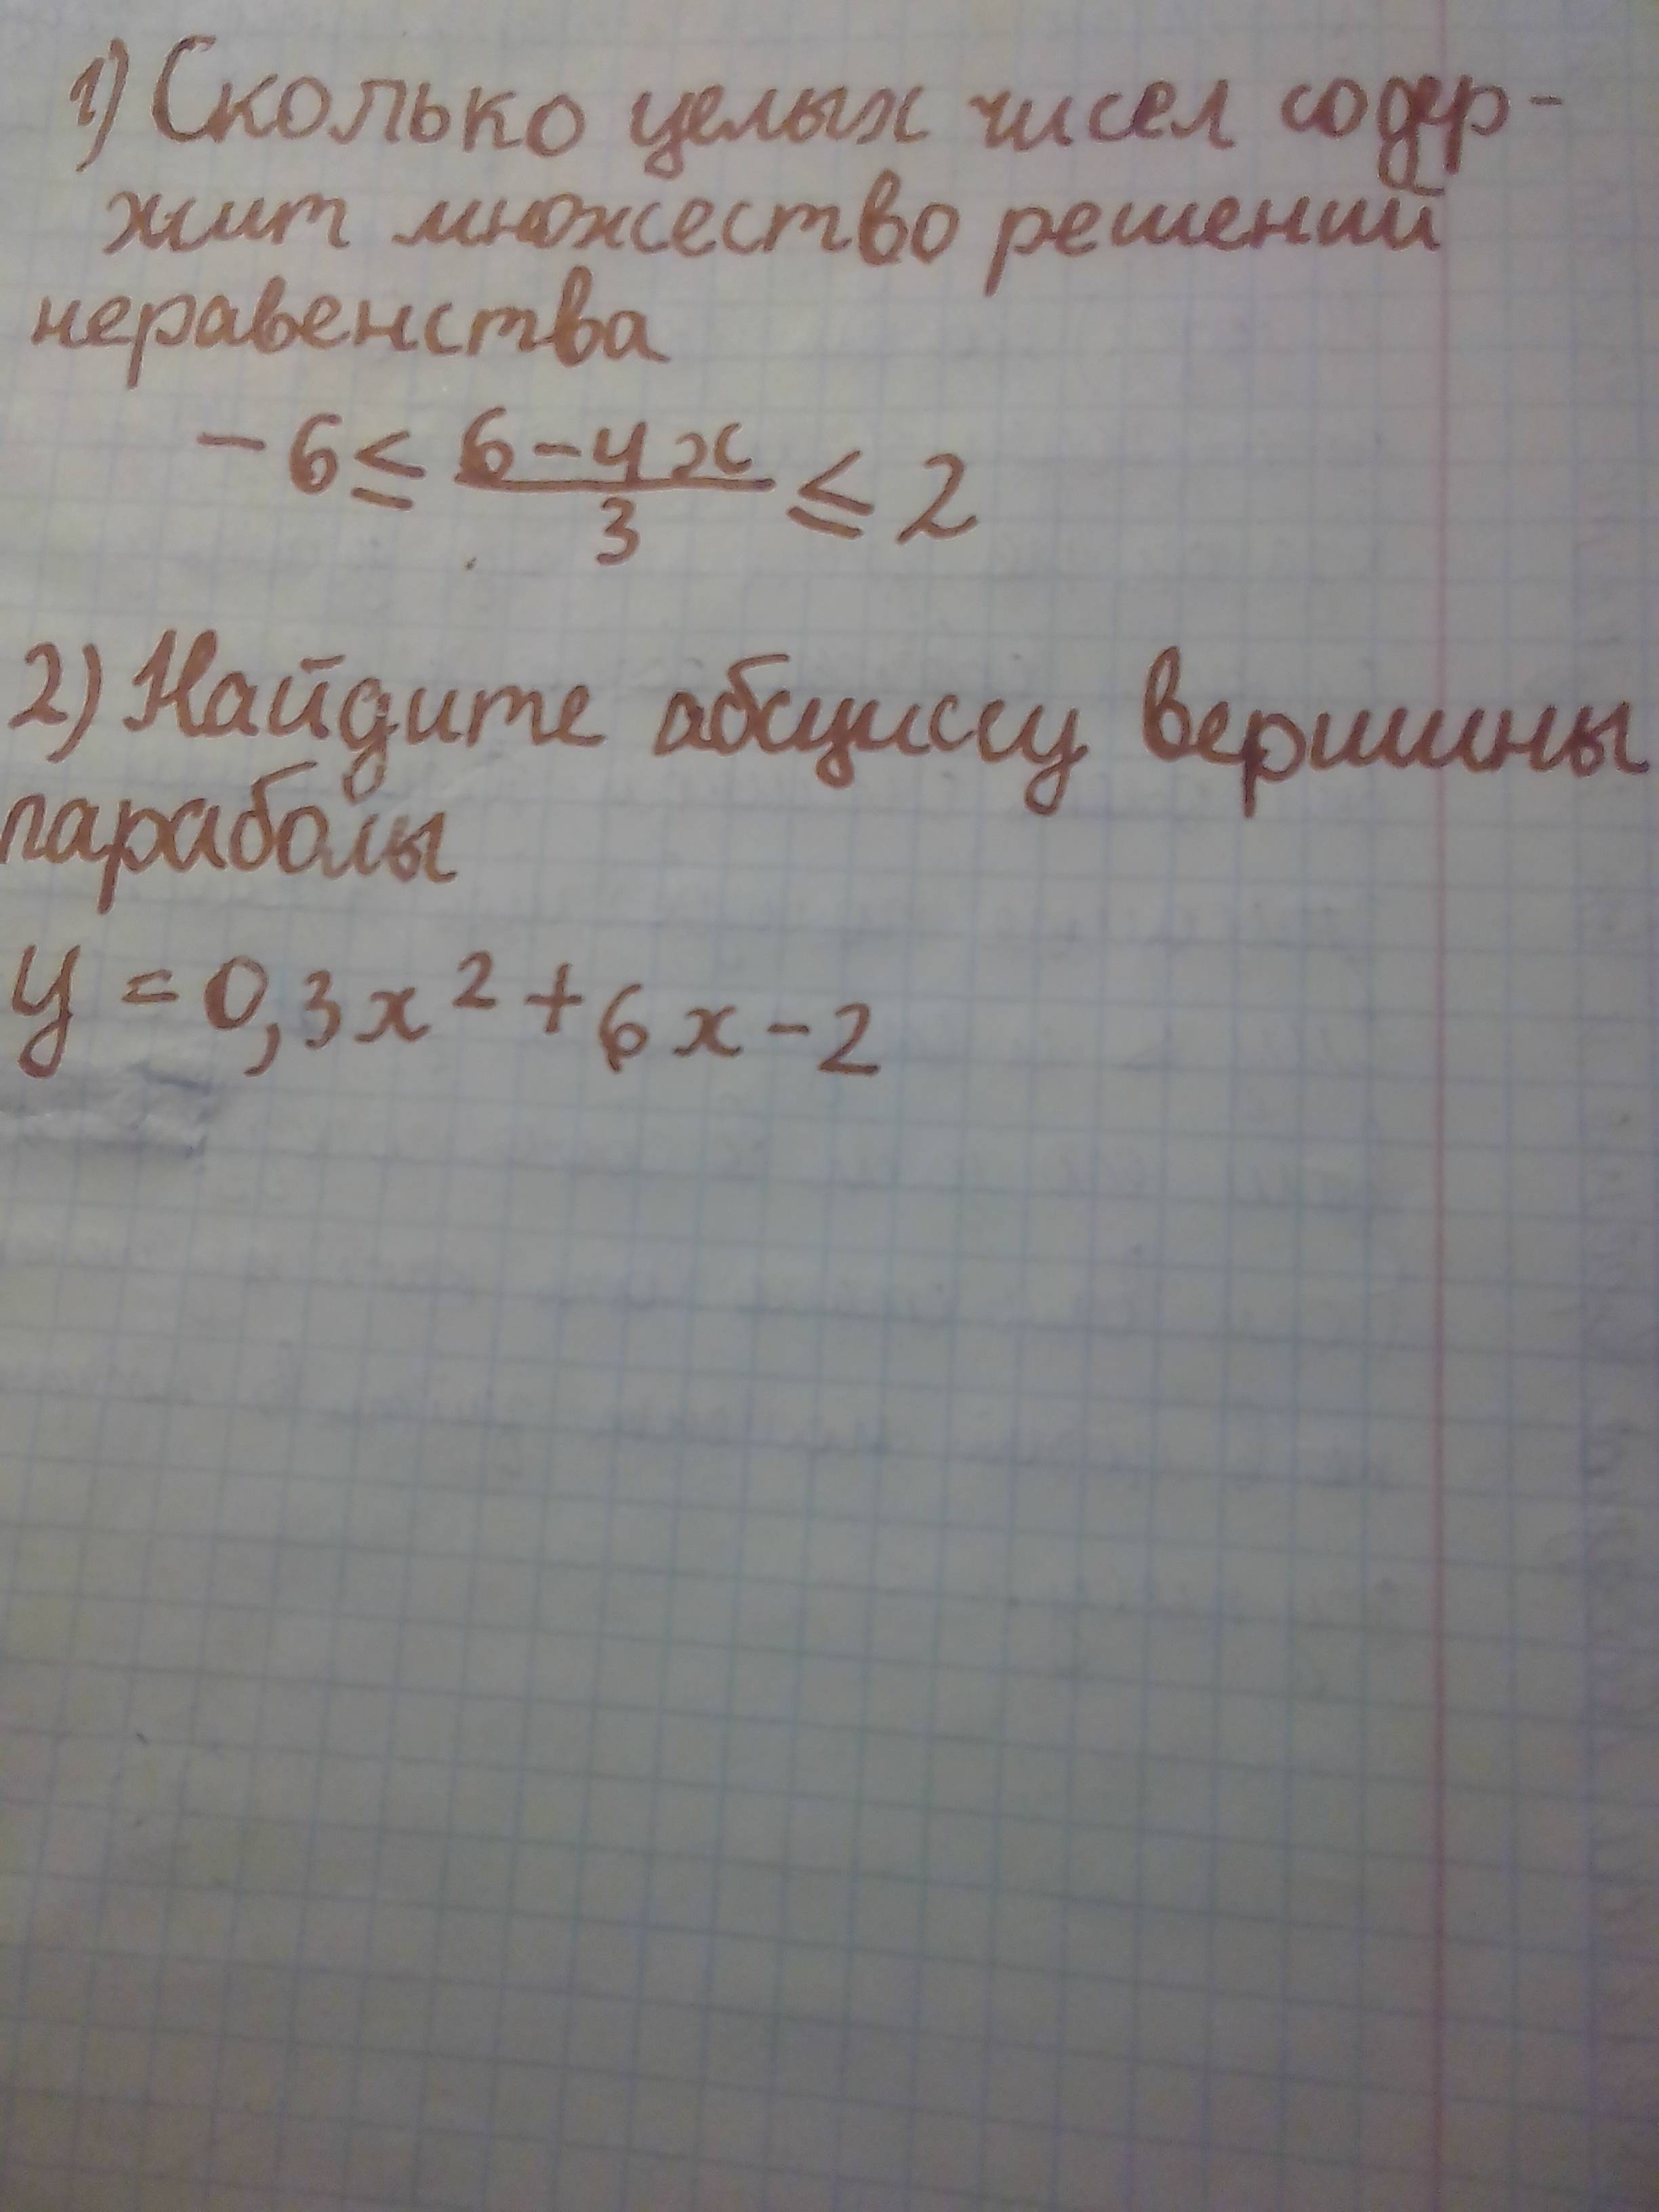 1) Сколько целых чисел содер-
жит множество решений
неравенства
-6 ≤ (6-4x)/3 ≤ 2
2) Найдите абсциссу вершины
параболы
y = 0,3x² + 6x - 2